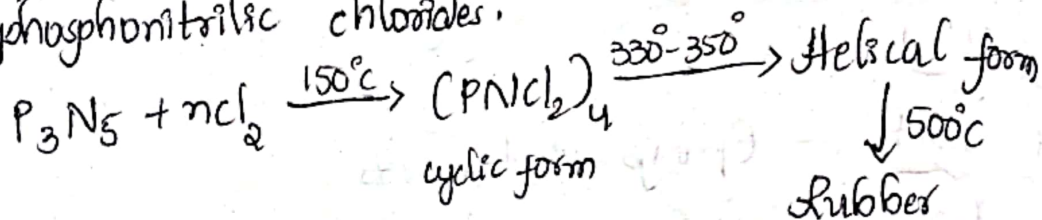 phosphonitrilic chlorides.
P₃N₅ + nCl₂ 150°C→ (PNCl₂)₄ 330°-350°→ Helical form
cyclic form ↓ 500°C
Rubber